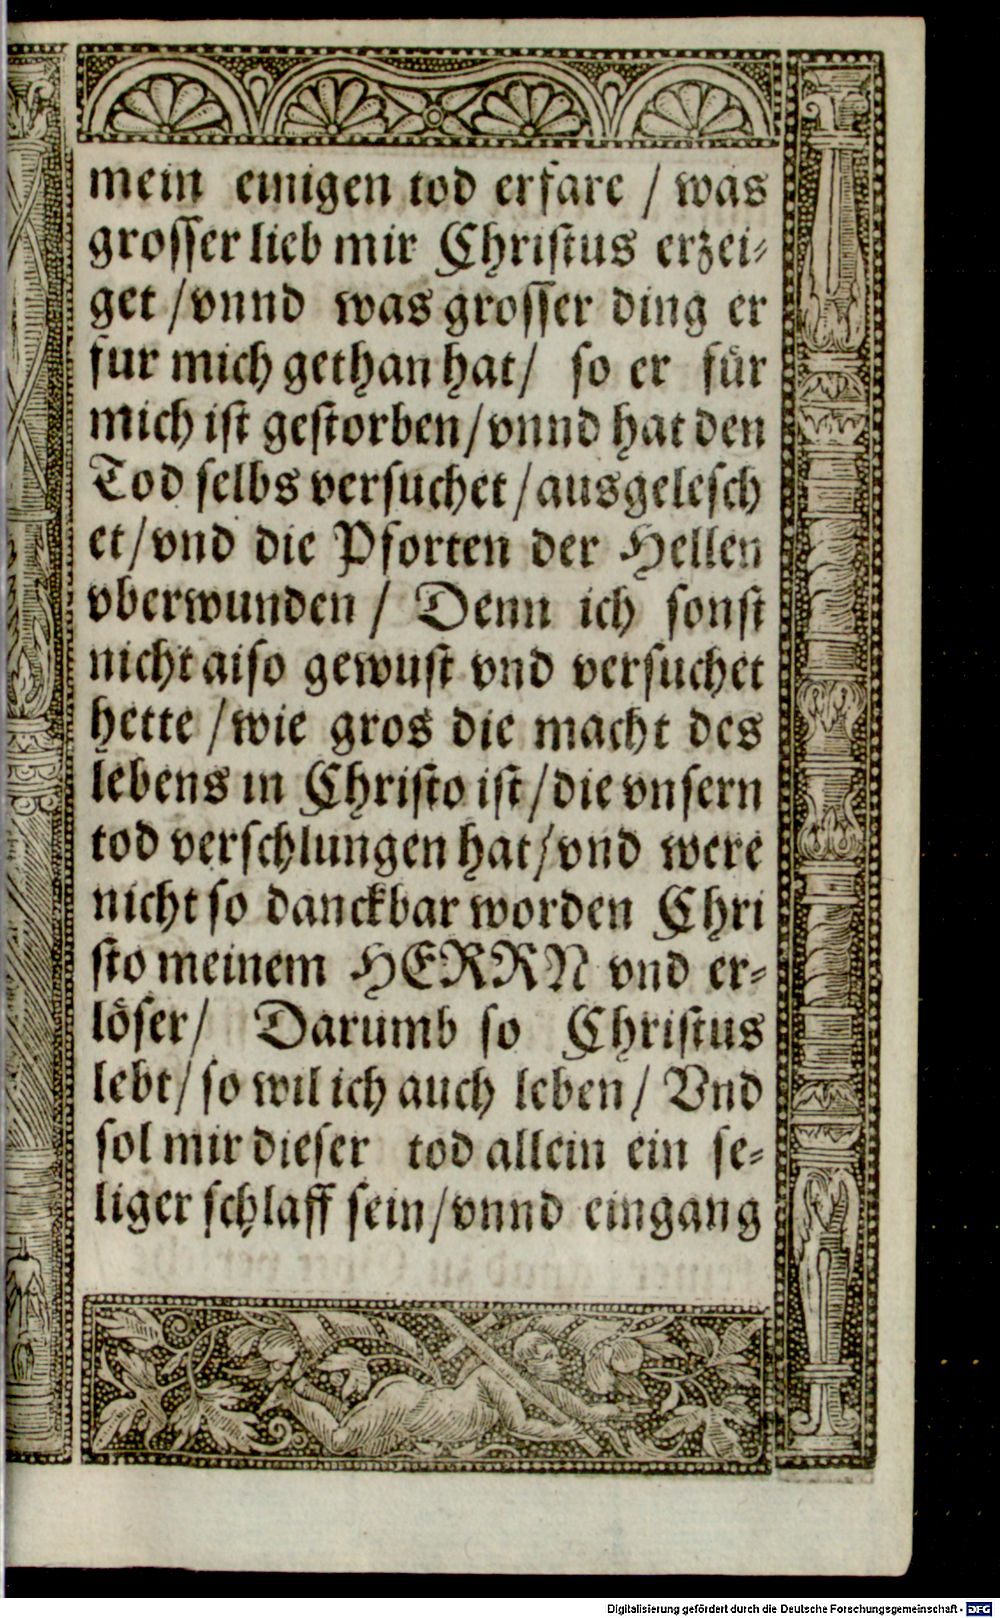 mein einigen tod erfare / was
grosser lieb mir Christus erzei-
get / vnnd was grosser ding er
fur mich gethan hat / so er für
mich ist gestorben / vnnd hat den
Tod selbs versuchet / ausgelesch
et / vnd die Pforten der Hellen
vberwunden / Denn ich sonst
nicht also gewust vnd versuchet
hette / wie gros die macht des
lebens in Christo ist / die vnsern
tod verschlungen hat / vnd were
nicht so danckbar worden Chri
sto meinem HERRN vnd er-
löser / Darumb so Christus
lebt / so wil ich auch leben / Vnd
sol mir dieser tod allein ein se-
liger schlaff sein / vnnd eingang
Digitalisierung gefördert durch die Deutsche Forschungsgemeinschaft - DFG